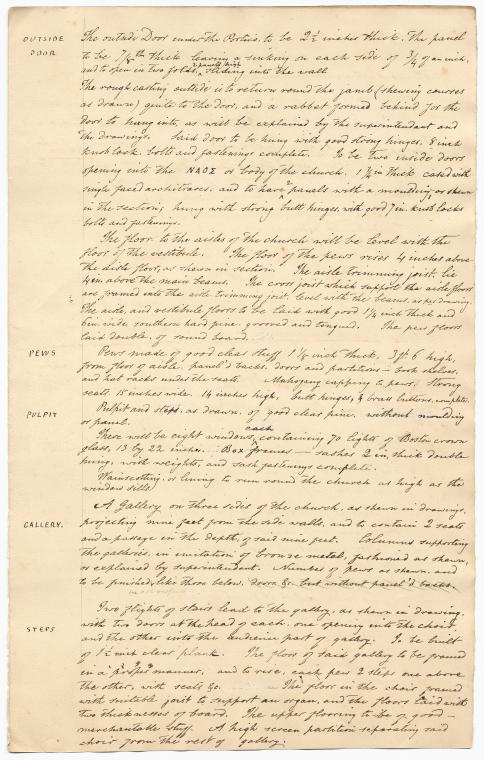 OUTSIDE DOOR
The outside Door under the Portico, to be 2 1/2 inches thick. The panel
to be 7/8th thick leaving a sinking on each side of 3/4 of an inch,
and to open in two folds, 2 panels high sliding into the wall
The rough casting outside is to return round the jamb (shewing courses
as drawn) quite to the door, and a rabbet formed behind for the
door to hung into, as will be explained by the superintendent and
the drawings. Said door to be hung with good strong hinges, 8 inch
knob lock, bolts and fastenings complete. To be two inside doors
opening into the NAOS or body of the church. 1 3/4 in thick cased with
single faced architraves, and to have 2 panels with a moulding, as shewn
in the section; hung with strong butt hinges, with good 7 in. knob locks
bolts and fastenings.
The floor to the aisles of the church will be level with the
floor of the vestibule. The floor of the pews rises 4 inches above
the aisle floor, as shewn in section. The aisle trimming joist, lie
4 in above the main beams. The cross joist which support the aisle floors
are framed into the aisle trimming joist, level with the beams, as per drawing.
The aisle, and vestibule floors to be laid with good 1 1/4 inch thick and
6 in. wide southern hard pine, grooved and tongued. The pew floors
laid double, of sound board.
PEWS
Pews made of good clear stuff 1 1/8 inch thick, 3 ft 6 high,
from floor of aisle. panel'd backs, doors and partitions — book shelves,
and hat racks under the seats. Mahogany capping to pews, strong
seats. 15 inches wide. 14 inches high, butt hinges, & brass buttons, complete.
PULPIT
Pulpit and steps, as drawn, of good clear pine, without moulding
or panel.
There will be eight windows, each containing 70 lights of Boston crown
glass, 13 by 22 inches. Box frames — sashes 2 in, thick double
hung, with weights, and sash fastenings complete.
Wainscotting, or lining to run round the church as high as the
window sills
GALLERY.
A Gallery on three sides of the church, as shewn in drawings,
projecting nine feet from the side walls, and to contain 2 seats
and a passage in the depth, of said nine feet. Columns supporting
the galleries, in imitation of bronze metal, fashioned as shewn,
or explained by superintendent. Number of pews as shewn, and
to be finished, like those below, doors &c. but without panel'd backs.
STEPS
Two flights of stairs lead to the gallery, as shewn in drawing,
with two doors at the head of each, one opening into the choir,
and the other into the audience part of gallery. To be built
of 1 1/2 inch clear plank. The floor of said gallery to be framed
in a proper manner, and to rise, each pew 2 steps one above
the other, with seats &c. The floor in the choir framed
with suitable joist to support an organ, and the floors laid with
two thicknesses of board. The upper flooring to be of good
merchantable stuff. A high screen partition separating said
choir from the rest of gallery.